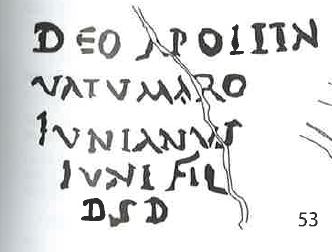 DEO APOLLIN
VATVMARO
IVNIANVS
IVNI FIL
D S D
53